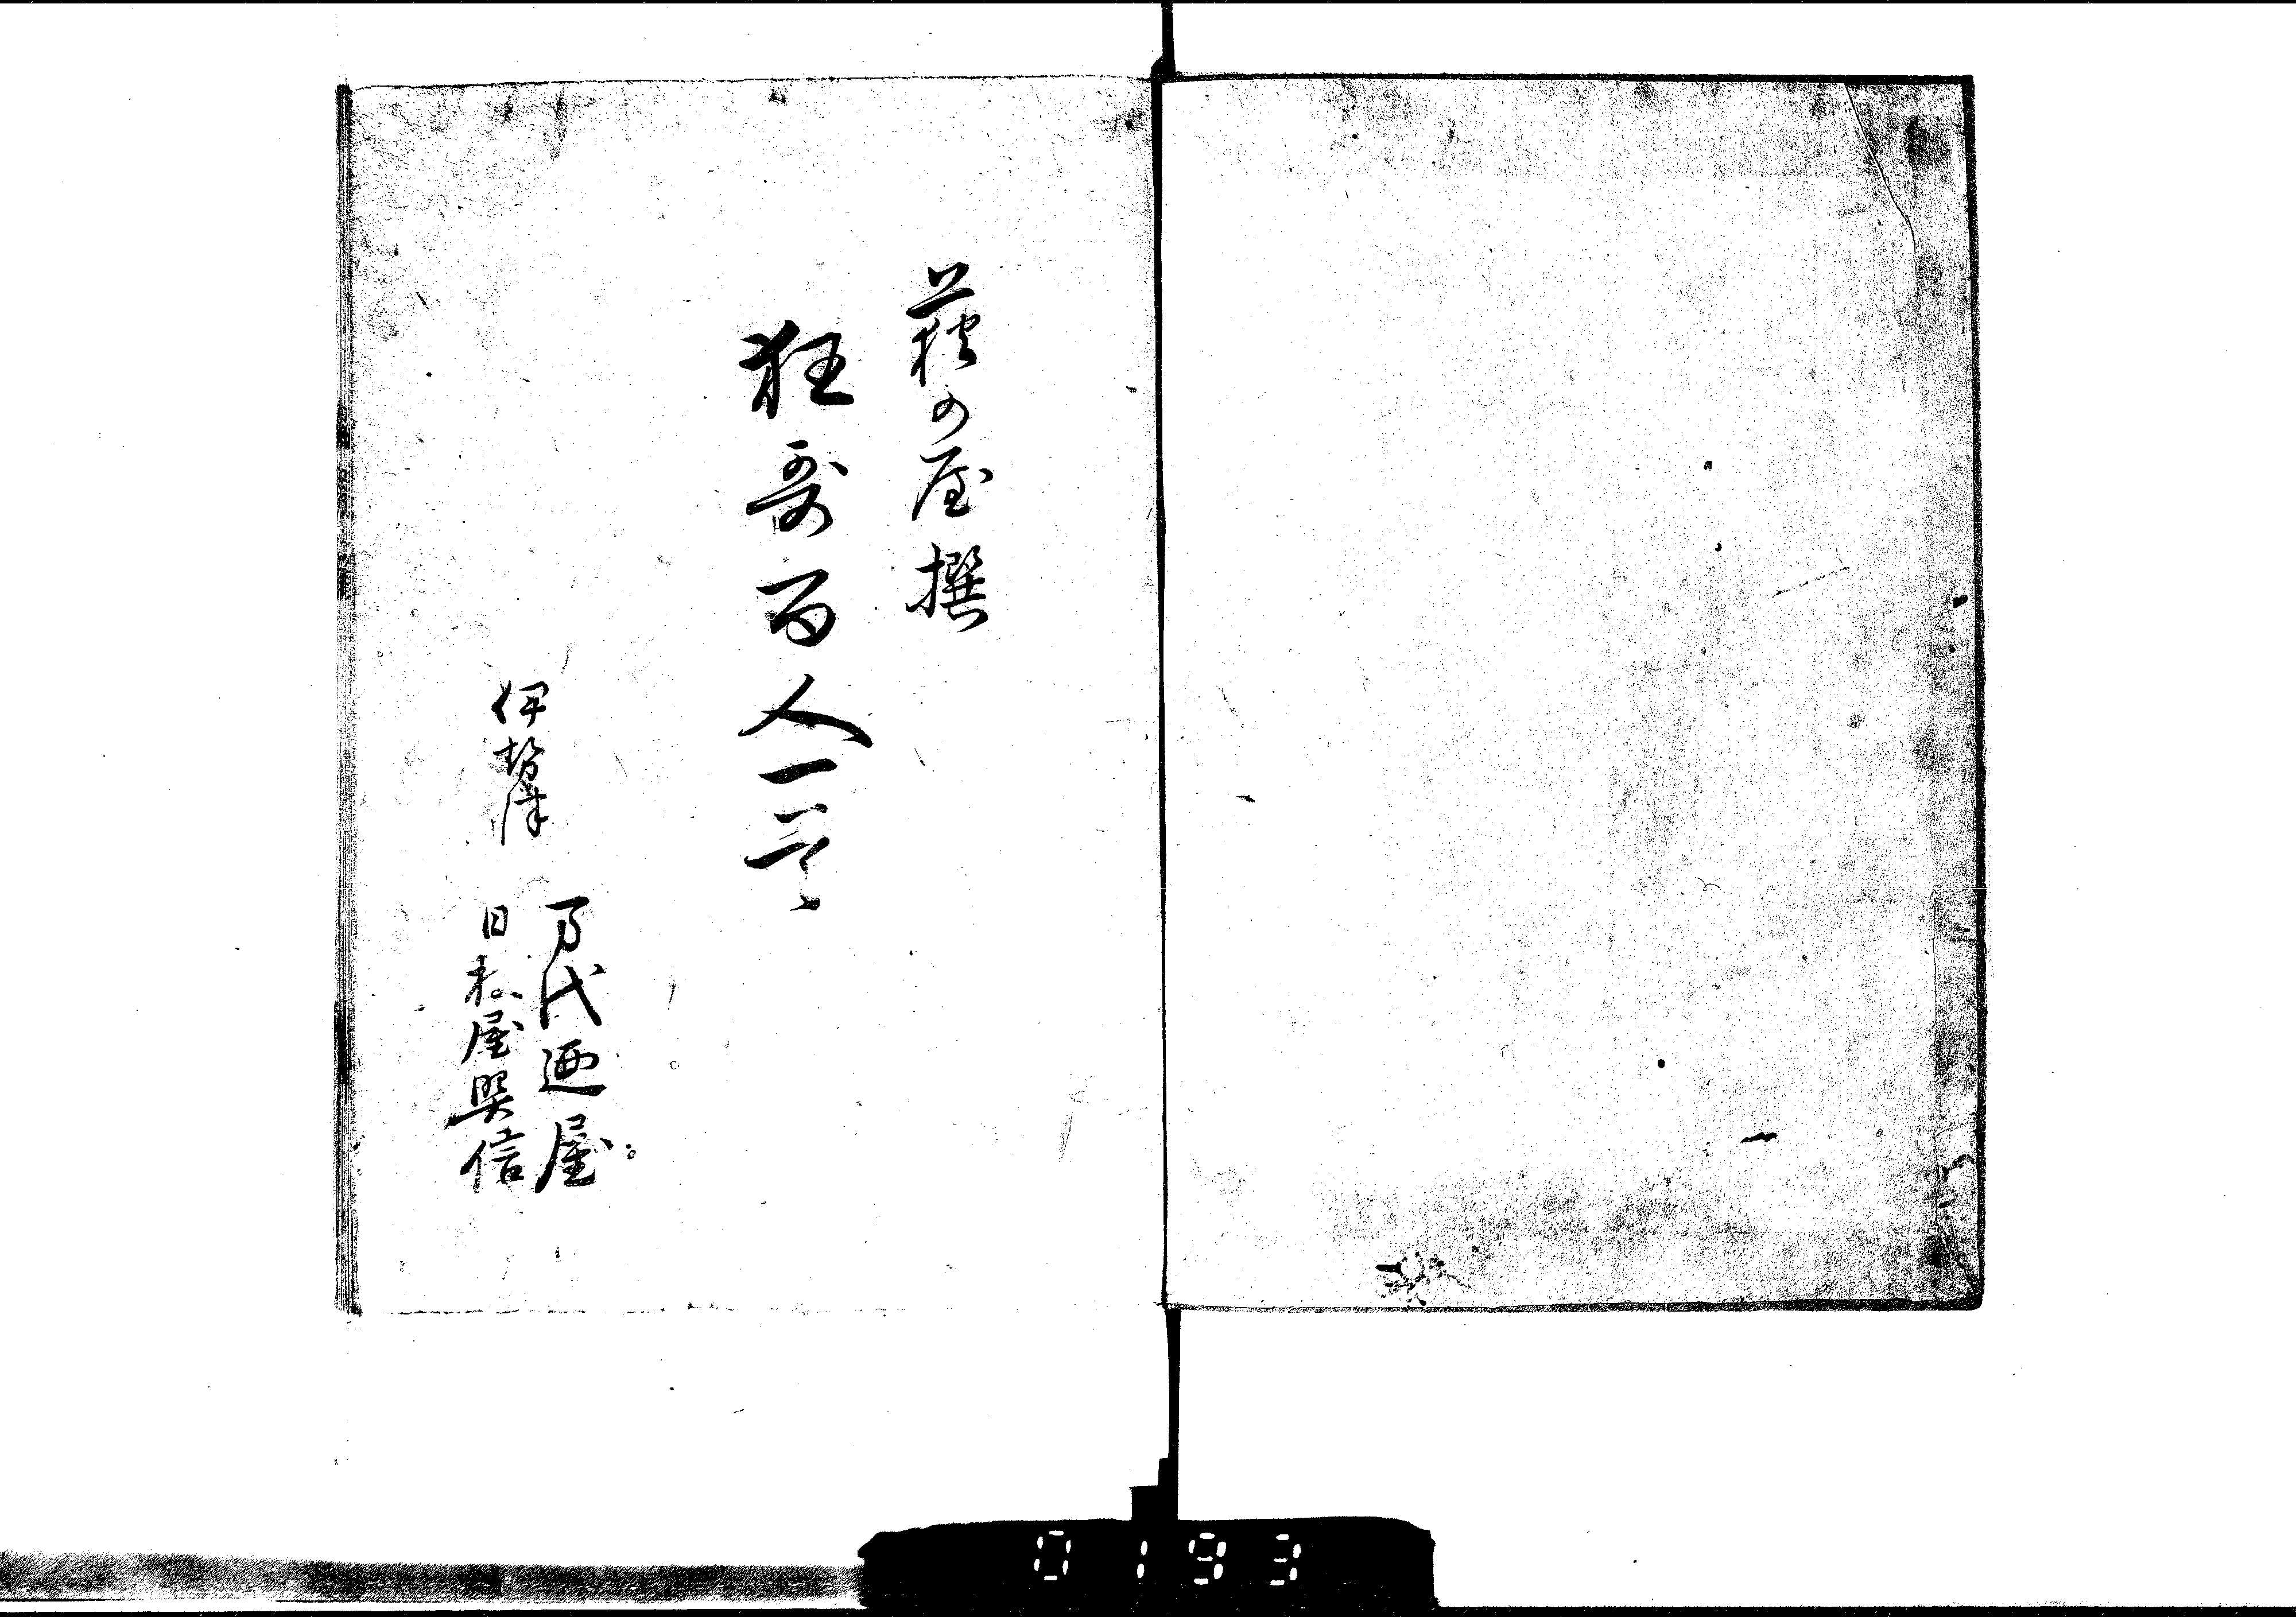 萩の屋撰
狂哥百人一首
伊勢津
万代廼屋
日和屋與信
0193